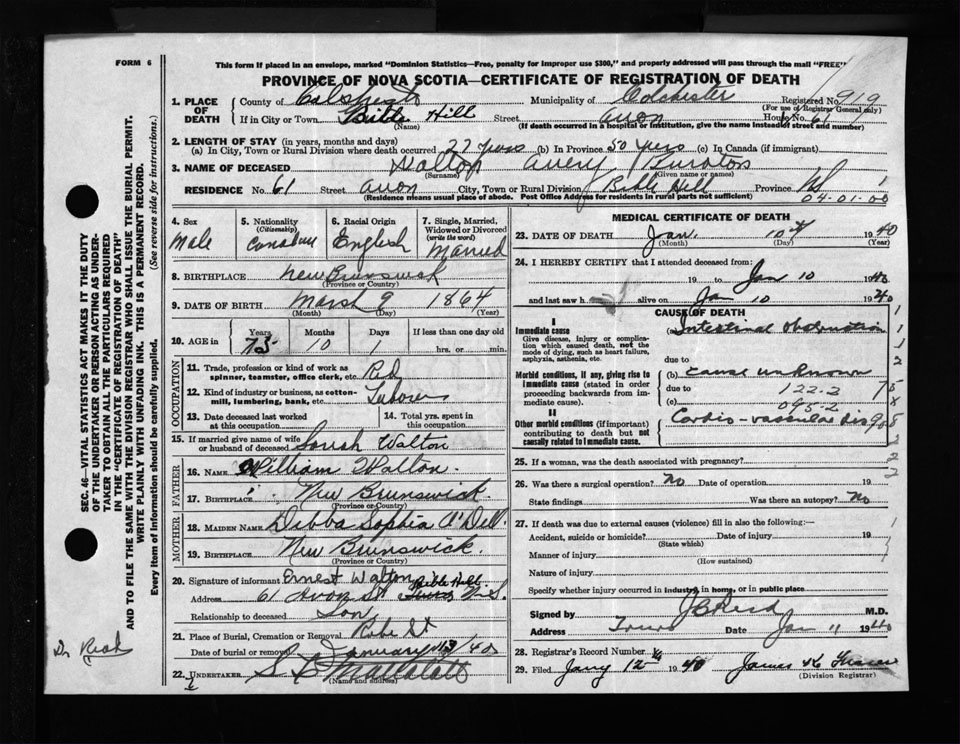 FORM 6
This form if placed in an envelope, marked "Dominion Statistics—Free, penalty for improper use $300," and properly addressed will pass through the mail "FREE"
PROVINCE OF NOVA SCOTIA—CERTIFICATE OF REGISTRATION OF DEATH
SEC. 46—VITAL STATISTICS ACT MAKES IT THE DUTY
OF THE UNDERTAKER OR PERSON ACTING AS UNDER-
TAKER TO OBTAIN ALL THE PARTICULARS REQUIRED
IN THE "CERTIFICATE OF REGISTRATION OF DEATH"
AND TO FILE THE SAME WITH THE DIVISION REGISTRAR WHO SHALL ISSUE THE BURIAL PERMIT.
WRITE PLAINLY WITH UNFADING INK. THIS IS A PERMANENT RECORD.
Every item of Information should be carefully supplied. (See reverse side for instructions.)
1. PLACE OF DEATH County of Colchester Municipality of Colchester Registered No. 919
(For use of Registrar General only)
If in City or Town Bible Hill Street Avon House No. 61
(Name) (If death occurred in a hospital or institution, give the name instead of street and number)
2. LENGTH OF STAY (in years, months and days)
(a) In City, Town or Rural Division where death occurred 22 years (b) In Province 50 years (c) In Canada (if immigrant)
3. NAME OF DECEASED Walton Avery
(Surname) (Given name or names)
RESIDENCE No. 61 Street Avon City, Town or Rural Division Bible Hill Province NS
(Residence means usual place of abode. Post Office Address for residents in rural parts not sufficient) 04-01-00
4. Sex Male
5. Nationality (Citizenship) Canadian
6. Racial Origin English
7. Single, Married, Widowed or Divorced (write the word) Married
8. BIRTHPLACE New Brunswick
(Province or Country)
9. DATE OF BIRTH March 9 1864
(Month) (Day) (Year)
10. AGE in Years 75 Months 10 Days 1 If less than one day old
hrs. or min.
OCCUPATION
11. Trade, profession or kind of work as spinner, teamster, office clerk, etc.
12. Kind of industry or business, as cotton-mill, lumbering, bank, etc. Laborer
13. Date deceased last worked at this occupation
14. Total yrs. spent in this occupation
15. If married give name of wife or husband of deceased Sarah Walton
FATHER
16. NAME William Walton.
17. BIRTHPLACE New Brunswick.
(Province or Country)
MOTHER
18. MAIDEN NAME Sophia O'Dell.
19. BIRTHPLACE New Brunswick.
(Province or Country)
20. Signature of informant Ernest Walton
Address 61 Avon St Bible Hill Truro N.S.
Relationship to deceased Son
21. Place of Burial, Cremation or Removal Robie St
Date of burial or removal January 13/40
22. UNDERTAKER
(Name and address)
MEDICAL CERTIFICATE OF DEATH
23. DATE OF DEATH Jan. 10th 1940
(Month) (Day) (Year)
24. I HEREBY CERTIFY that I attended deceased from:
19 to Jan 10 1940
and last saw h alive on Jan 10 1940
CAUSE OF DEATH
I
Immediate cause
Give disease, injury or complication which caused death, not the mode of dying, such as heart failure, asphyxia, asthenia, etc.
(a) Intestinal obstruction
due to
Morbid conditions, if any, giving rise to immediate cause (stated in order proceeding backwards from immediate cause).
(b) cause unknown
due to 122-2
(c) 095-2
II
Other morbid conditions (if important) contributing to death but not causally related to immediate cause.
Cardio-vascular dis
25. If a woman, was the death associated with pregnancy?
26. Was there a surgical operation? No Date of operation 19
State findings Was there an autopsy? No
27. If death was due to external causes (violence) fill in also the following:—
Accident, suicide or homicide? Date of injury 19
(State which)
Manner of injury
(How sustained)
Nature of injury
Specify whether injury occurred in industry, in home, or in public place
Signed by M.D.
Address Truro Date Jan 11 1940
28. Registrar's Record Number
29. Filed Jany 12 1940 James K Fraser
(Division Registrar)